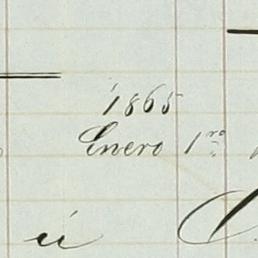 1865
Enero 1ro